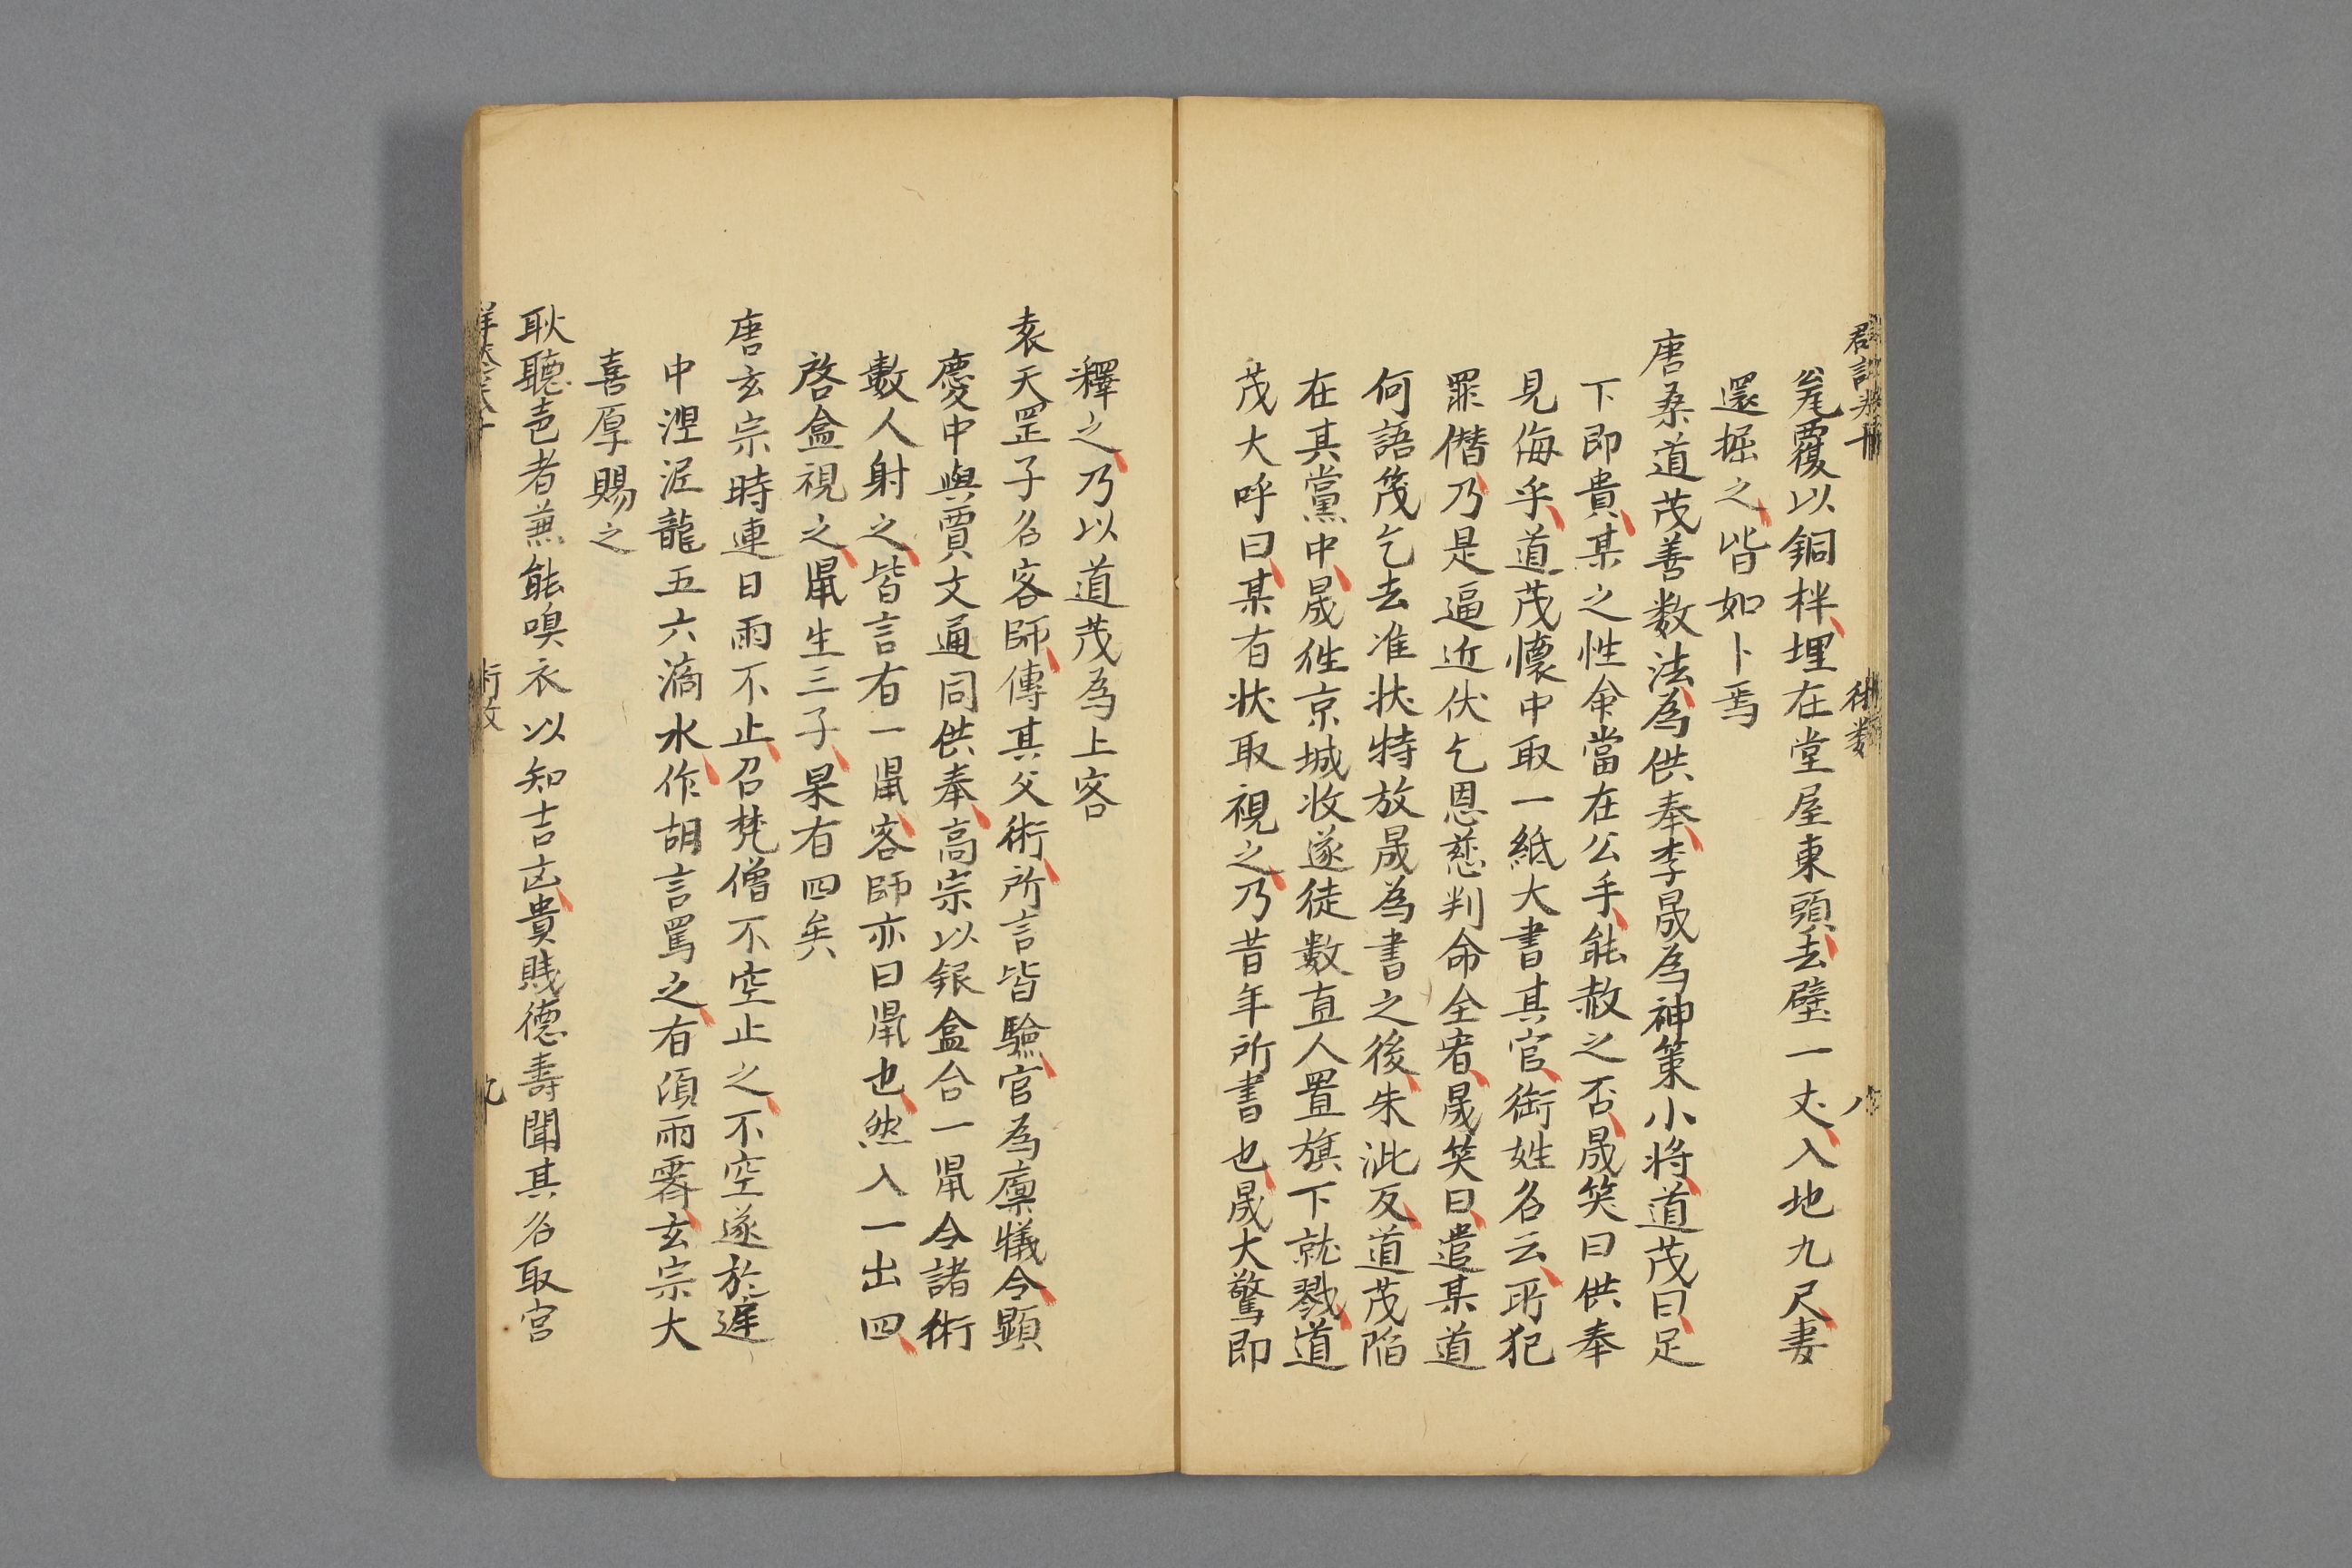 甕覆以銅柈埋在堂屋東頭去壁一丈入地九尺妻
還掘之皆如卜焉
唐桑道茂善数法為供奉李晟為神策小将道茂曰足
下即貴某之性命當在公手能赦之否晟笑曰供奉
見侮乎道茂懷中取一紙大書其官銜姓名云所犯
罪僭乃是逼近伏乞恩慈判命全宥晟笑曰遣某道
何語茂乞去准状特放晟為書之後朱泚反道茂陷
在其黨中晟徃京城收遂徒數直人置旗下就戮道
茂大呼曰某有状取視之乃昔年所書也晟大驚即
釋之乃以道茂為上客
袁天罡子名客師傳其父術所言皆驗官為廪犧令顕
慶中與賈文通同供奉高宗以銀盒合一鼠令諸術
數人射之皆言有一鼠客師亦曰鼠也然入一出四
啓盒視之鼠生三子果有四矣
唐玄宗時連日雨不止召梵僧不空止之不空遂於遲
中湼泥龍五六滴水作胡言罵之有湏雨霽玄宗大
喜厚賜之
耿聽㲋者兼能嗅衣以知吉凶貴賎德壽聞其名取宮
術数
八
九